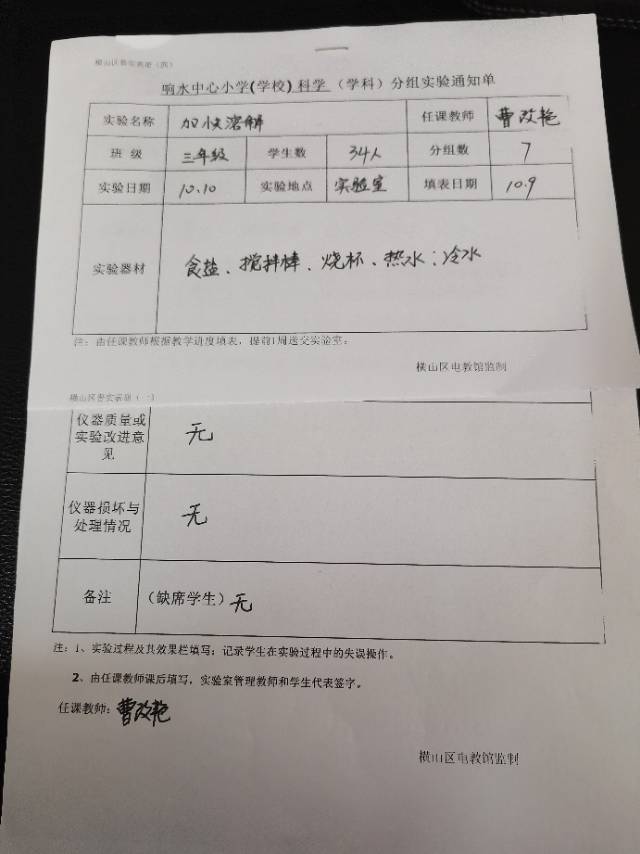 横山区普实表册（四）
响水中心小学(学校) 科学 （学科）分组实验通知单
实验名称 加快溶解 任课教师 曹改艳
班 级 三年级 学生数 34人 分组数 7
实验日期 10.10 实验地点 实验室 填表日期 10.9
实验器材 食盐、搅拌棒、烧杯、热水；冷水
注：由任课教师根据教学进度填表，提前1周送交实验室；
横山区电教馆监制
横山区普实表册（二）
仪器质量或
实验改进意
见
无
仪器损坏与
处理情况
无
备注 （缺席学生）无
注：1、实验过程及其效果栏填写：记录学生在实验过程中的失误操作。
2、由任课教师课后填写，实验室管理教师和学生代表签字。
任课教师：曹改艳
横山区电教馆监制